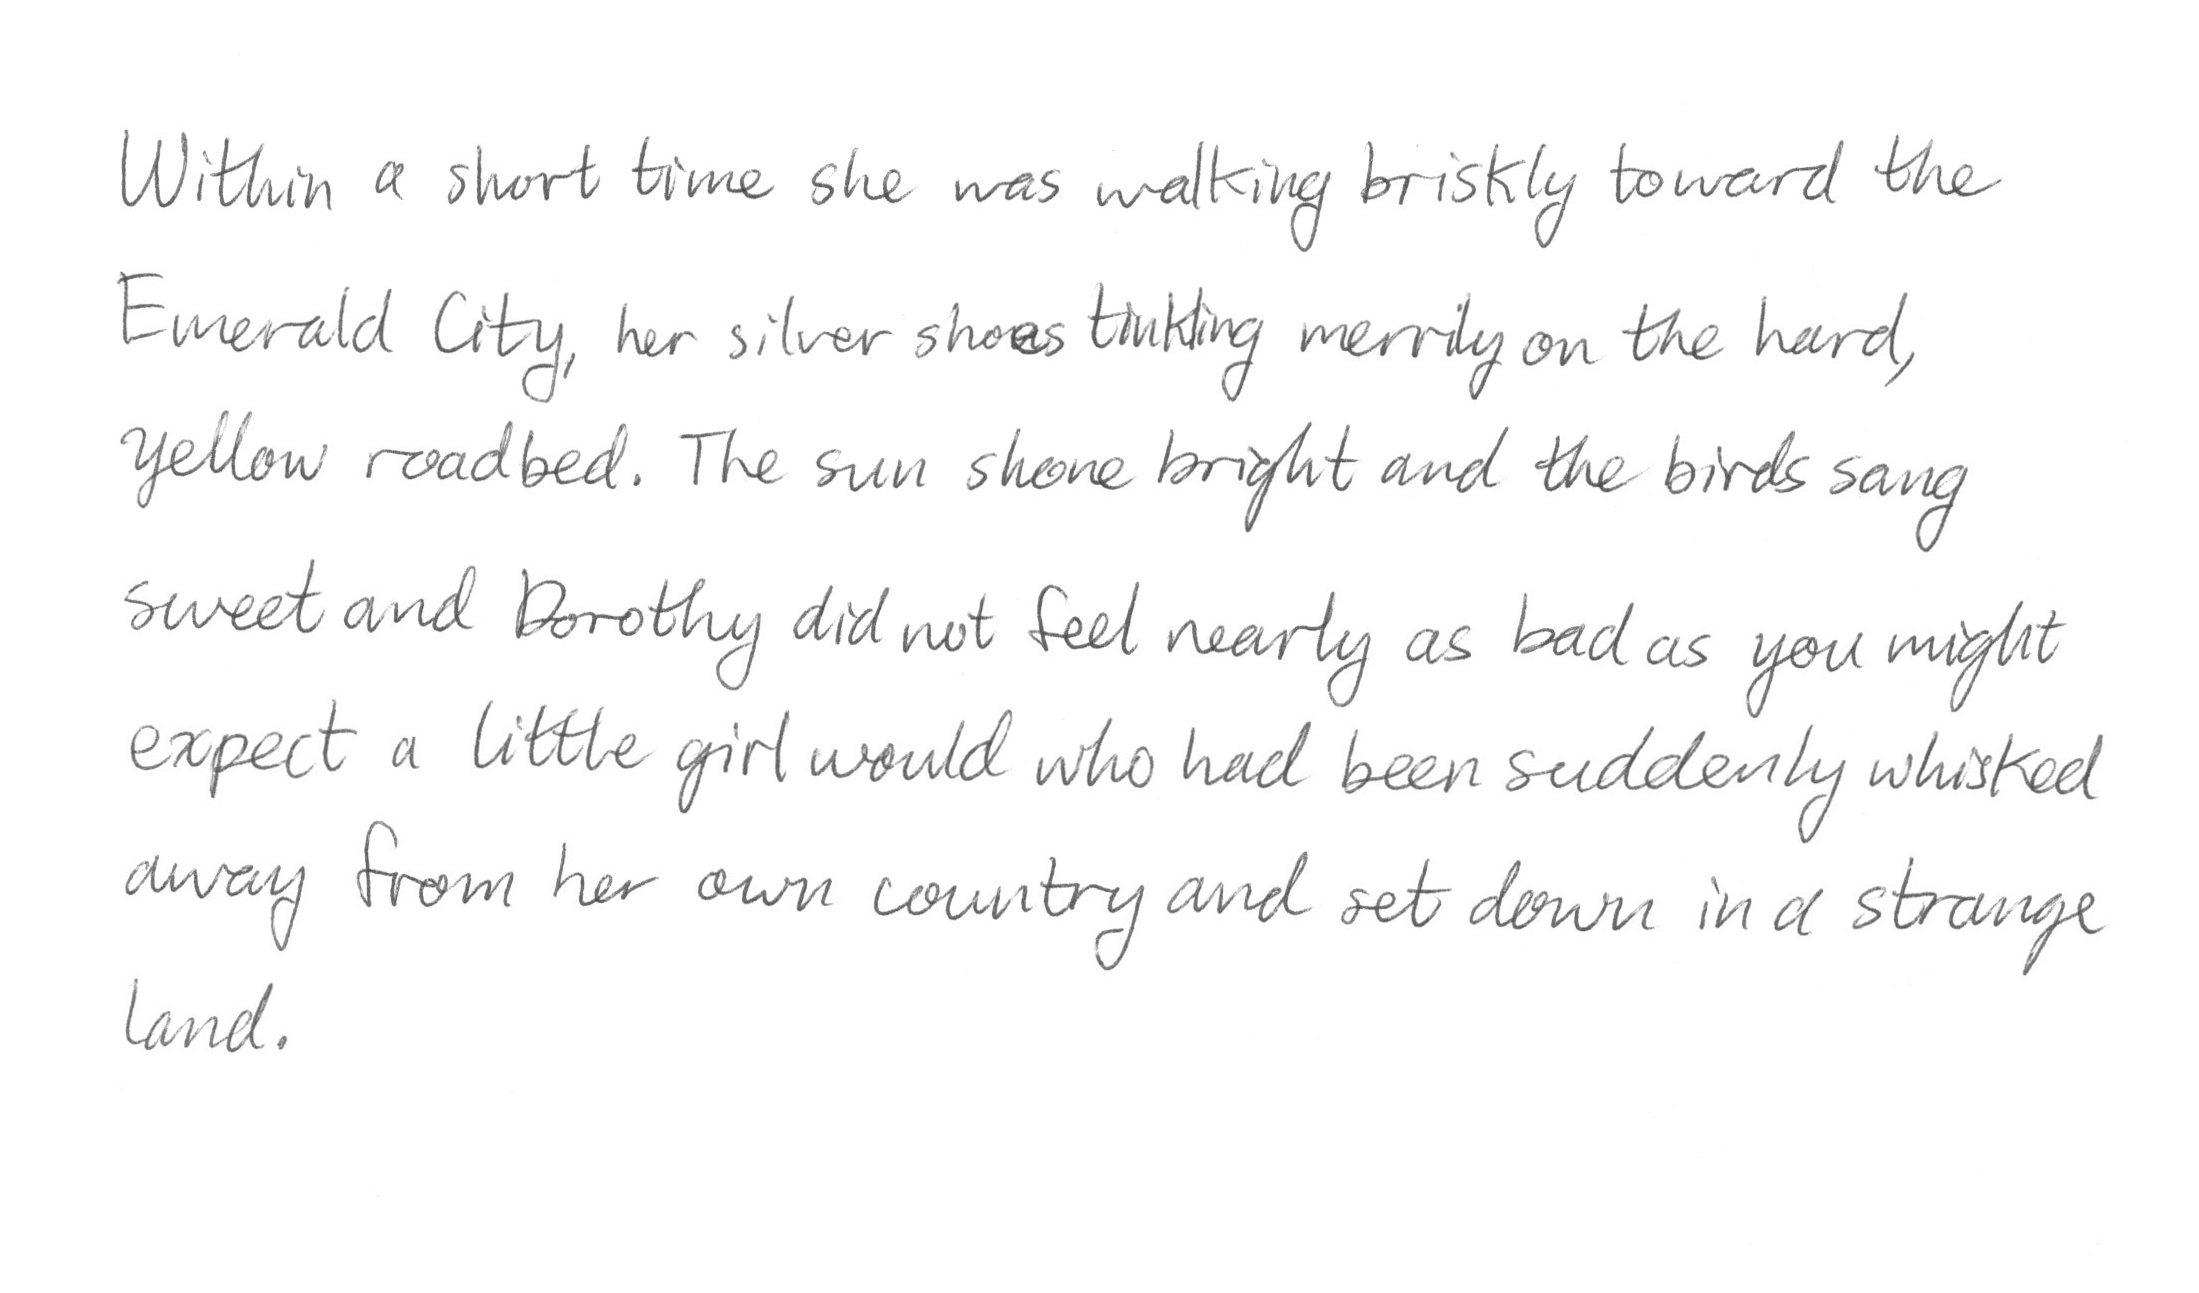 Within a short time she was walking briskly toward the
Emerald City, her silver shoes tinkling merrily on the hard,
yellow roadbed. The sun shone bright and the birds sang
sweet and Dorothy did not feel nearly as bad as you might
expect a little girl would who had been suddenly whisked
away from her own country and set down in a strange
land.